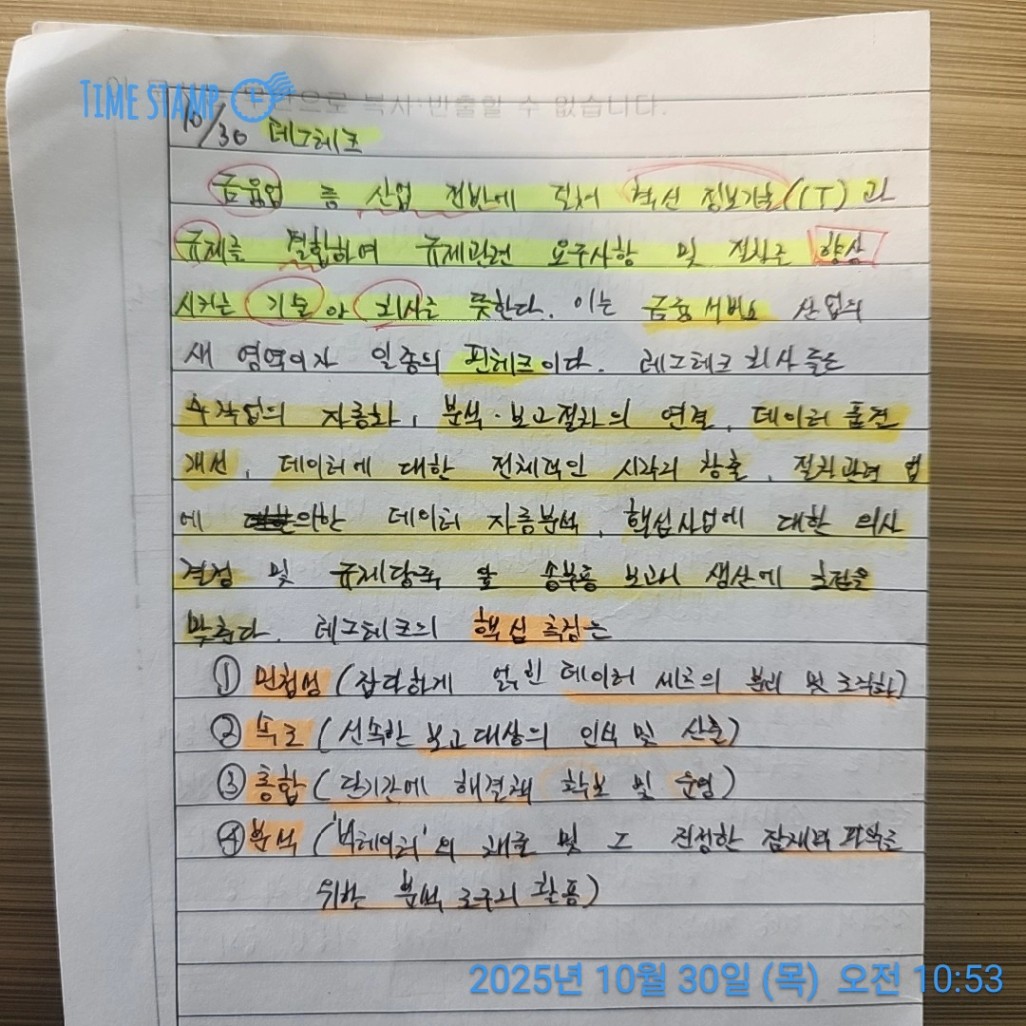 TIME STAMP
으로 복사·반출할 수 없습니다.
10/30 레그테크
금융업 등 산업 전반에 걸쳐 혁신 정보기술(IT)과
규제를 결합하여 규제관련 요구사항 및 절차를 향상
시키는 기술 or 회사를 뜻한다. 이는 금융서비스 산업의
새 영역이자 일종의 핀테크이다. 레그테크 회사들은
수작업의 자동화, 분석·보고절차의 연결, 데이터 품질
개선, 데이터에 대한 전체적인 시각의 창출, 절차관련 앱
에 의한 데이터 자동분석, 핵심사업에 대한 의사
결정 및 규제당국 앞 송부용 보고서 생산에 초점을
맞춘다. 레그테크의 핵심 특징은
① 민첩성 (잡다하게 얽힌 데이터 세트의 분리 및 조직화)
② 속도 (신속한 보고대상의 인식 및 산출)
③ 통합 (단기간에 해결책 확보 및 운영)
④ 분석 ('빅데이터'의 채굴 및 그 진정한 잠재력 파악을
위한 분석 도구의 활용)
2025년 10월 30일 (목) 오전 10:53